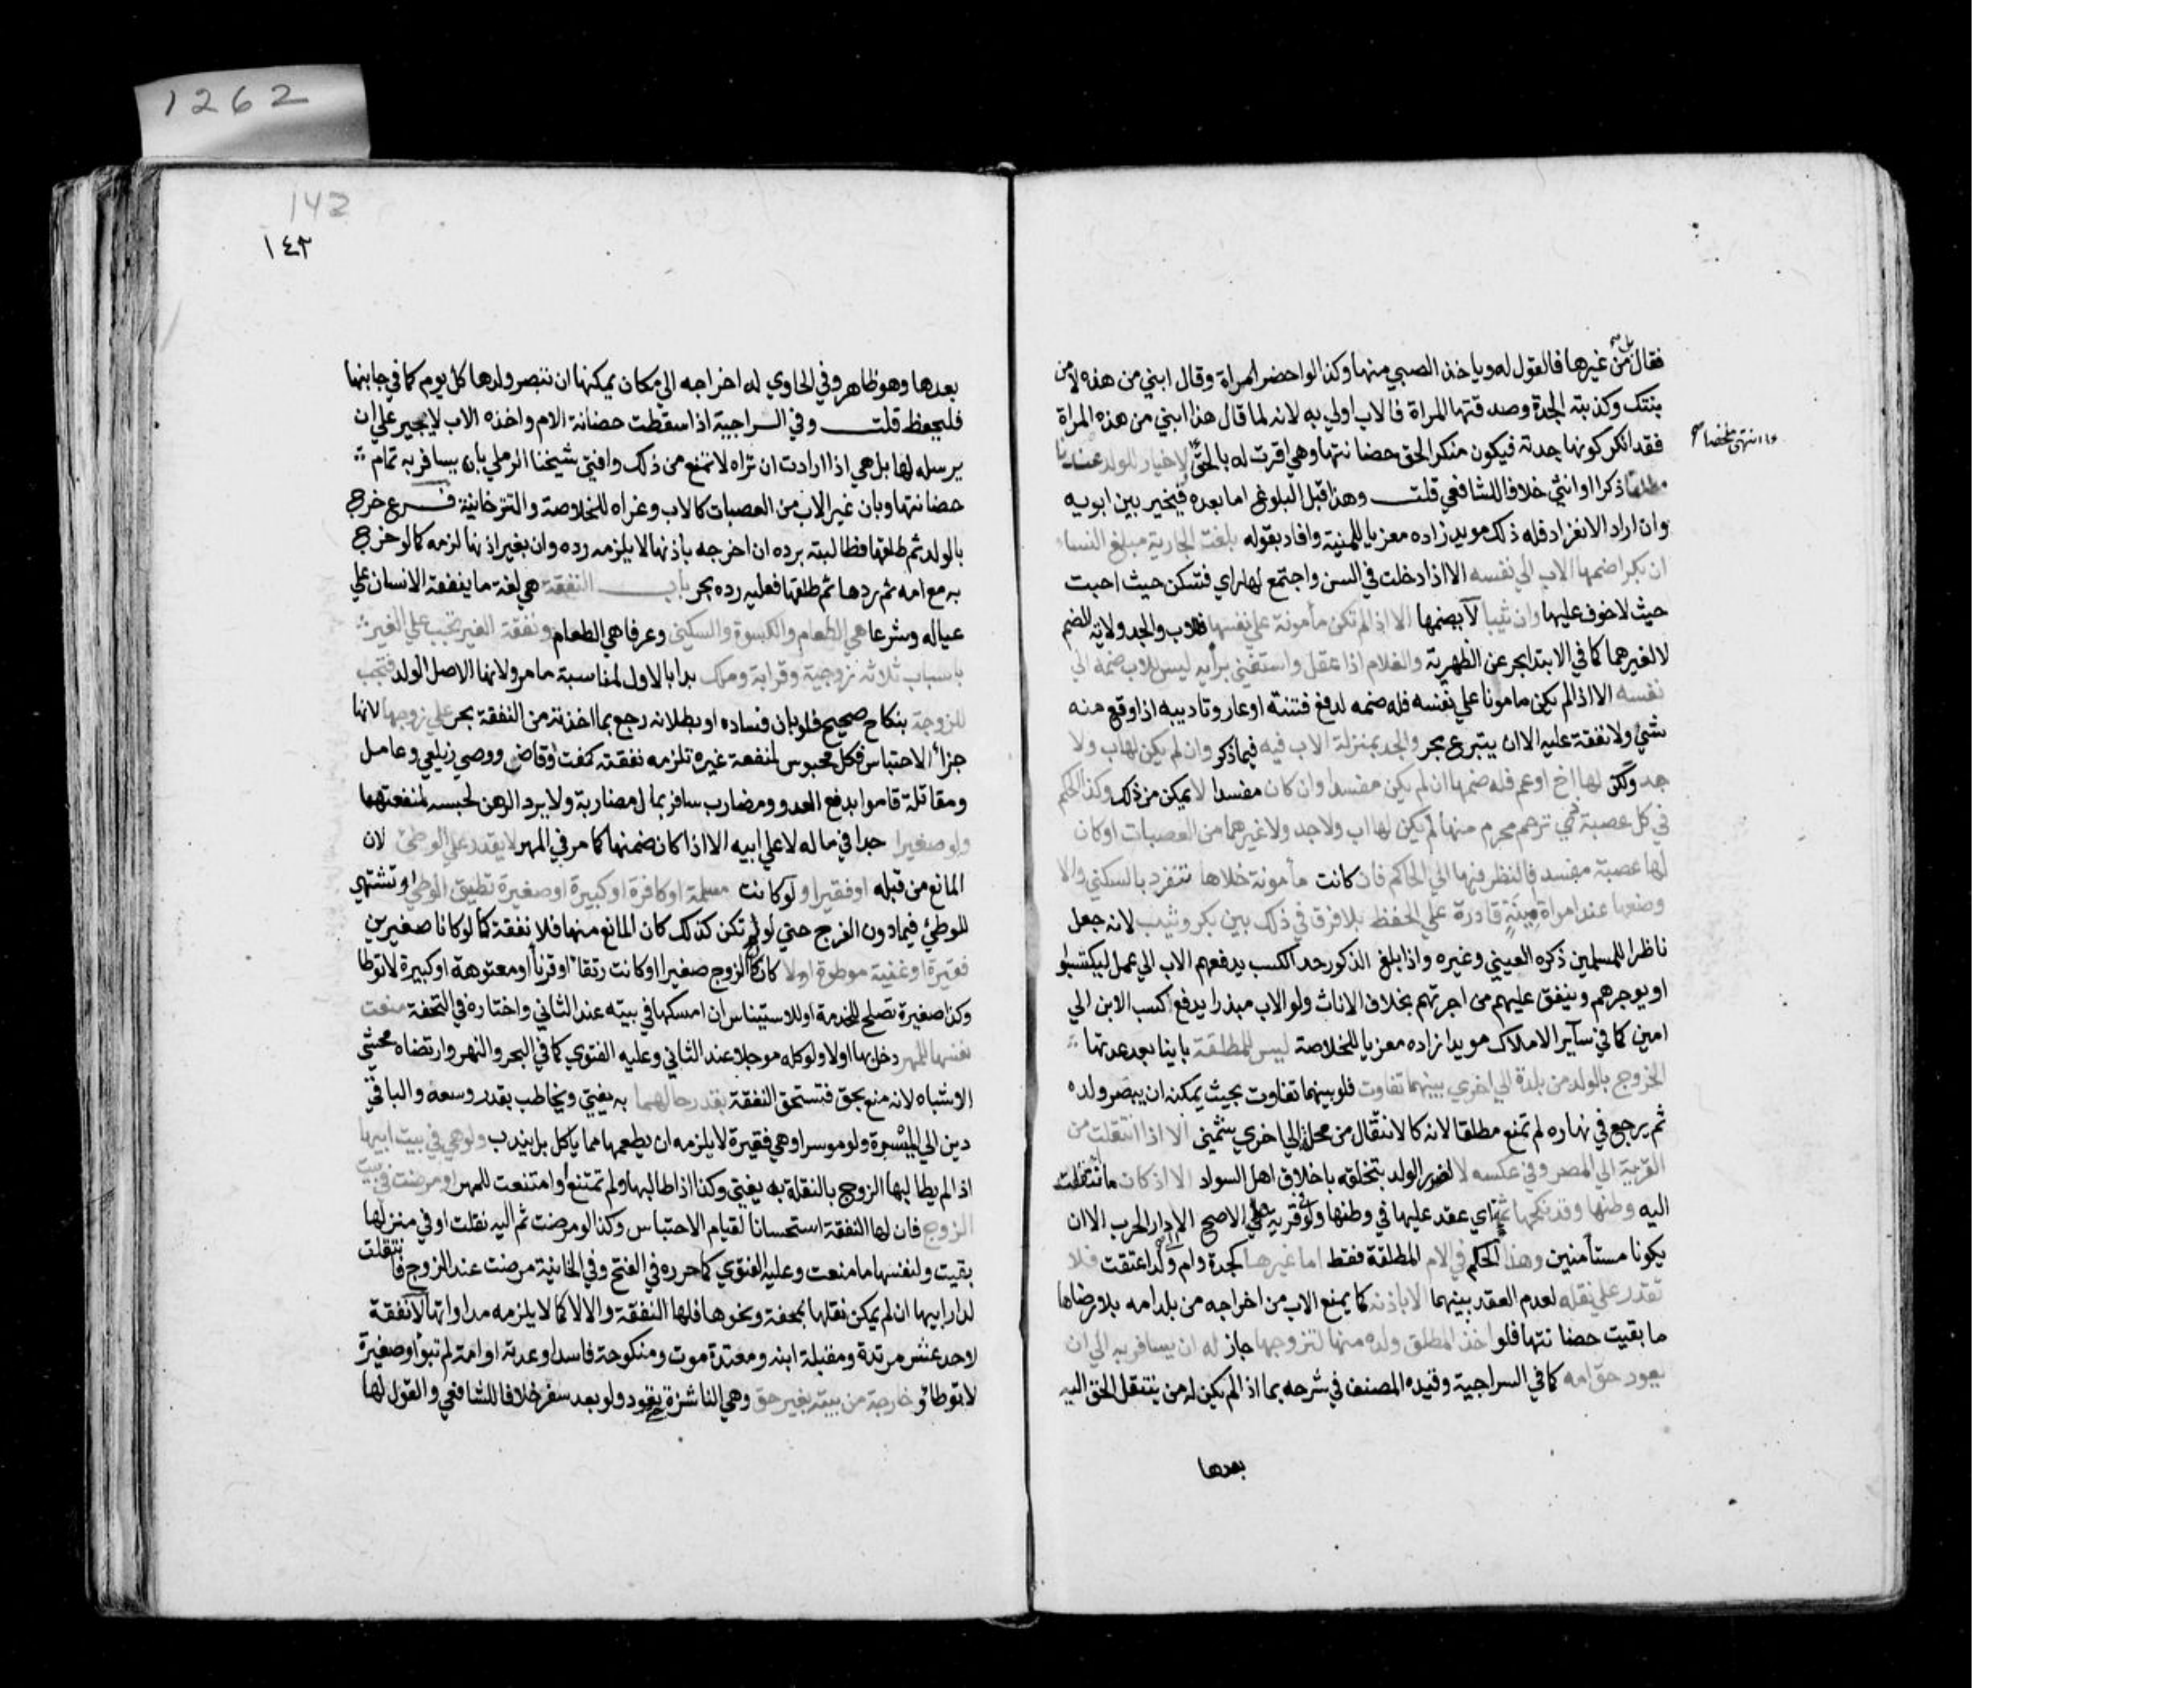 1262
فقال من غيرها فالقول له وياخذ الصبي منها وكذا لو احضر امراة وقال ابني من هذه لا من
بل
بنتك وكذبته الجدة وصدقتها المراة فالاب اولي به لانه لما قال هذا ابني من هذه المراة
فقد انكر كونها جدته فيكون منكر الحق حضانتها وهي اقرت له بالحق لاخيار للولد عندنا
انتهي ملخصا
مطلقا ذكرا او انثي خلافا للشافعي قلت وهذا قبل البلوغ اما بعده فيخير بين ابويه
وان اراد الانفراد فله ذلك مويد زاده معزيا للمنية وافاد بقوله بلغت الجارية مبلغ النساء
ان بكرا ضمها الاب الي نفسه الا اذا دخلت في السن واجتمع لها راي فتسكن حيث احبت
حيث لا خوف عليها وان ثيبا لا يضمها الا اذا لم تكن مأمونة علي نفسها فللاب والجد ولاية الضم
لا لغيرهما كما في الابتدا بحر عن الظهرية والغلام اذا عقل واستغني برأيه ليس للاب ضمه الي
نفسه الا اذا لم يكن مامونا علي نفسه فله ضمه لدفع فتنة او عار وتاديبه اذا وقع منه
شئ ولا نفقة عليه الا ان يتبرع بحر والجد بمنزلة الاب فيه فيما ذكر وان لم يكن لها اب ولا
جد ولكن لها اخ او عم فله ضمها ان لم يكن مفسدا وان كان مفسدا لا يمكن من ذلك وكذا الحكم
في كل عصبة ذي رحم محرم منها لم يكن لها اب ولا جد ولا غيرهما من العصبات او كان
لها عصبة مفسد فالنظر فيها الي الحاكم فان كانت مأمونة خلاها تنفرد بالسكني والا
وضعها عند امراة امينة قادرة علي الحفظ بلا فرق في ذلك بين بكر وثيب لانه جعل
ناظرا للمسلمين ذكره العيني وغيره واذا بلغ الذكور حد الكسب يدفعهم الاب الي عمل ليكتسبوا
او يوجرهم وينفق عليهم من اجرتهم بخلاف الاناث ولو الاب مبذرا يدفع كسب الابن الي
امين كما في سآير الاملاك مويدا زاده معزيا للخلاصة ليس للمطلقة باينا بعد عدتها
الخروج بالولد من بلدة الي اخري بينهما تفاوت فلو بينهما تفاوت بحيث يمكن ان يبصر ولده
ثم يرجع في نهاره لم تمنع مطلقا لانه كالانتقال من محلة الي اخري شمني الا اذا انتقلت من
القرية الي المصر وفي عكسه لا لضرر الولد بتخلقه باخلاق اهل السواد الا اذ كان ما انتقلت
اليه وطنها وقد نكحها ثمة اي عقد عليها في وطنها ولو قرية في الاصح الا دار الحرب الا ان
يكونا مستأمنين وهذا الحكم في الام المطلقة فقط اما غيرها كجدة وام ولد اعتقت فلا
تقدر علي نقله لعدم العقد بينهما الا باذنه كما يمنع الاب من اخراجه من بلد امه بلا رضاها
ما بقيت حضانتها فلو اخذ المطلق ولده منها لتزوجها جاز له ان يسافر به الي ان
يعود حق امه كما في السراجية وقيده المصنف في شرحه بما اذا لم يكن له من ينتقل الحق اليه
بعدها
142
١٤٣
بعدها وهو ظاهر وفي الحاوي له اخراجه الي مكان يمكنها ان تبصر ولدها كل يوم كما في جانبها
فليحفظ قلت وفي السراجية اذا سقطت حضانة الام واخذه الاب لا يجبر علي ان
يرسله لها بل هي اذا ارادت ان تراه لا تمنع من ذلك وافتي شيخنا الرملي بان يسافر به تمام
حضانتها وبان غير الاب من العصبات كالاب وعزاه للخلاصة والتترخانية فرع خرج
بالولد ثم طلقها فطالبته برده ان اخرجه باذنها لا يلزمه رده وان بغير اذنها لزمه كما لو خرج
به مع امه ثم ردها ثم طلقها فعليه رده بحر باب النفقة هي لغة ما ينفقه الانسان علي
عياله وشرعا هي الطعام والكسوة والسكني وعرفا هي الطعام ونفقة الغير تجب علي الغير
باسباب ثلاثه زوجية وقرابة وملك بدا بالاول لمناسبة ما مر ولانها الاصل الولد فتجب
للزوجة بنكاح صحيح فلو بان فساده او بطلانه رجع بما اخذته من النفقة بحر علي زوجها لانها
جزأ الاحتباس فكل محبوس لمنفعة غيره تلزمه نفقته كمفت وقاض ووصي زيلعي وعامل
ومقاتلة قاموا بدفع العدو ومضارب سافر بمال مضاربة ولا يرد الرهن لحبسه لمنفعتهما
ولو صغيرا جدا في ماله لا علي ابيه الا اذا كان ضمنها كما مر في المهر لا يقدر علي الوطئ لان
المانع من قبله او فقيرا ولو كانت مسلمة او كافرة او كبيرة او صغيرة تطيق الوطئ او تشتهي
للوطئ فيما دون الفرج حتي لو لم تكن كذلك كان المانع منها فلا نفقة كما لو كانا صغيرين
فقيرة او غنية موطوة او لا كان الزوج صغيرا او كانت رتقا او قرنا او معتوهة او كبيرة لا توطا
وكذا صغيرة تصلح للخدمة او للاستيناس ان امسكها في بيته عند الثاني واختاره في التحفة منعت
نفسها للمهر دخل بها اولا ولو كله موجلا عند الثاني وعليه الفتوي كما في البحر والنهر وارتضاه محشي
الاشباه لانه منع بحق فتستحق النفقة بقدر حالهما به يفتي ويخاطب بقدر وسعه والباقي
دين الي الميسرة ولو موسرا وهي فقيرة لا يلزمه ان يطعمها مما ياكل بل يندب ولو هي في بيت ابيها
اذا لم يطالبها الزوج بالنقلة به يفتي وكذا اذا طالبها ولم تمتنع او امتنعت للمهر او مرضت في بيت
الزوج فان لها النفقة استحسانا لقيام الاحتباس وكذا لو مرضت ثم اليه نقلت او في منزلها
بقيت ولنفسها ما منعت وعليه الفتوي كما حرره في الفتح وفي الخانية مرضت عند الزوج فانتقلت
لدار ابيها ان لم يمكن نقلها بمحفة ونحوها فلها النفقة والا لا كما لا يلزمه مداواتها لا نفقة
لاحد عشر مرتدة ومقبلة ابنه ومعتدة موت ومنكوحة فاسدا وعدته او امة لم تبوأ وصغيرة
لا توطا و خارجة من بيته بغير حق وهي الناشزة حتي تعود ولو بعد سفر خلافا للشافعي والقول لها